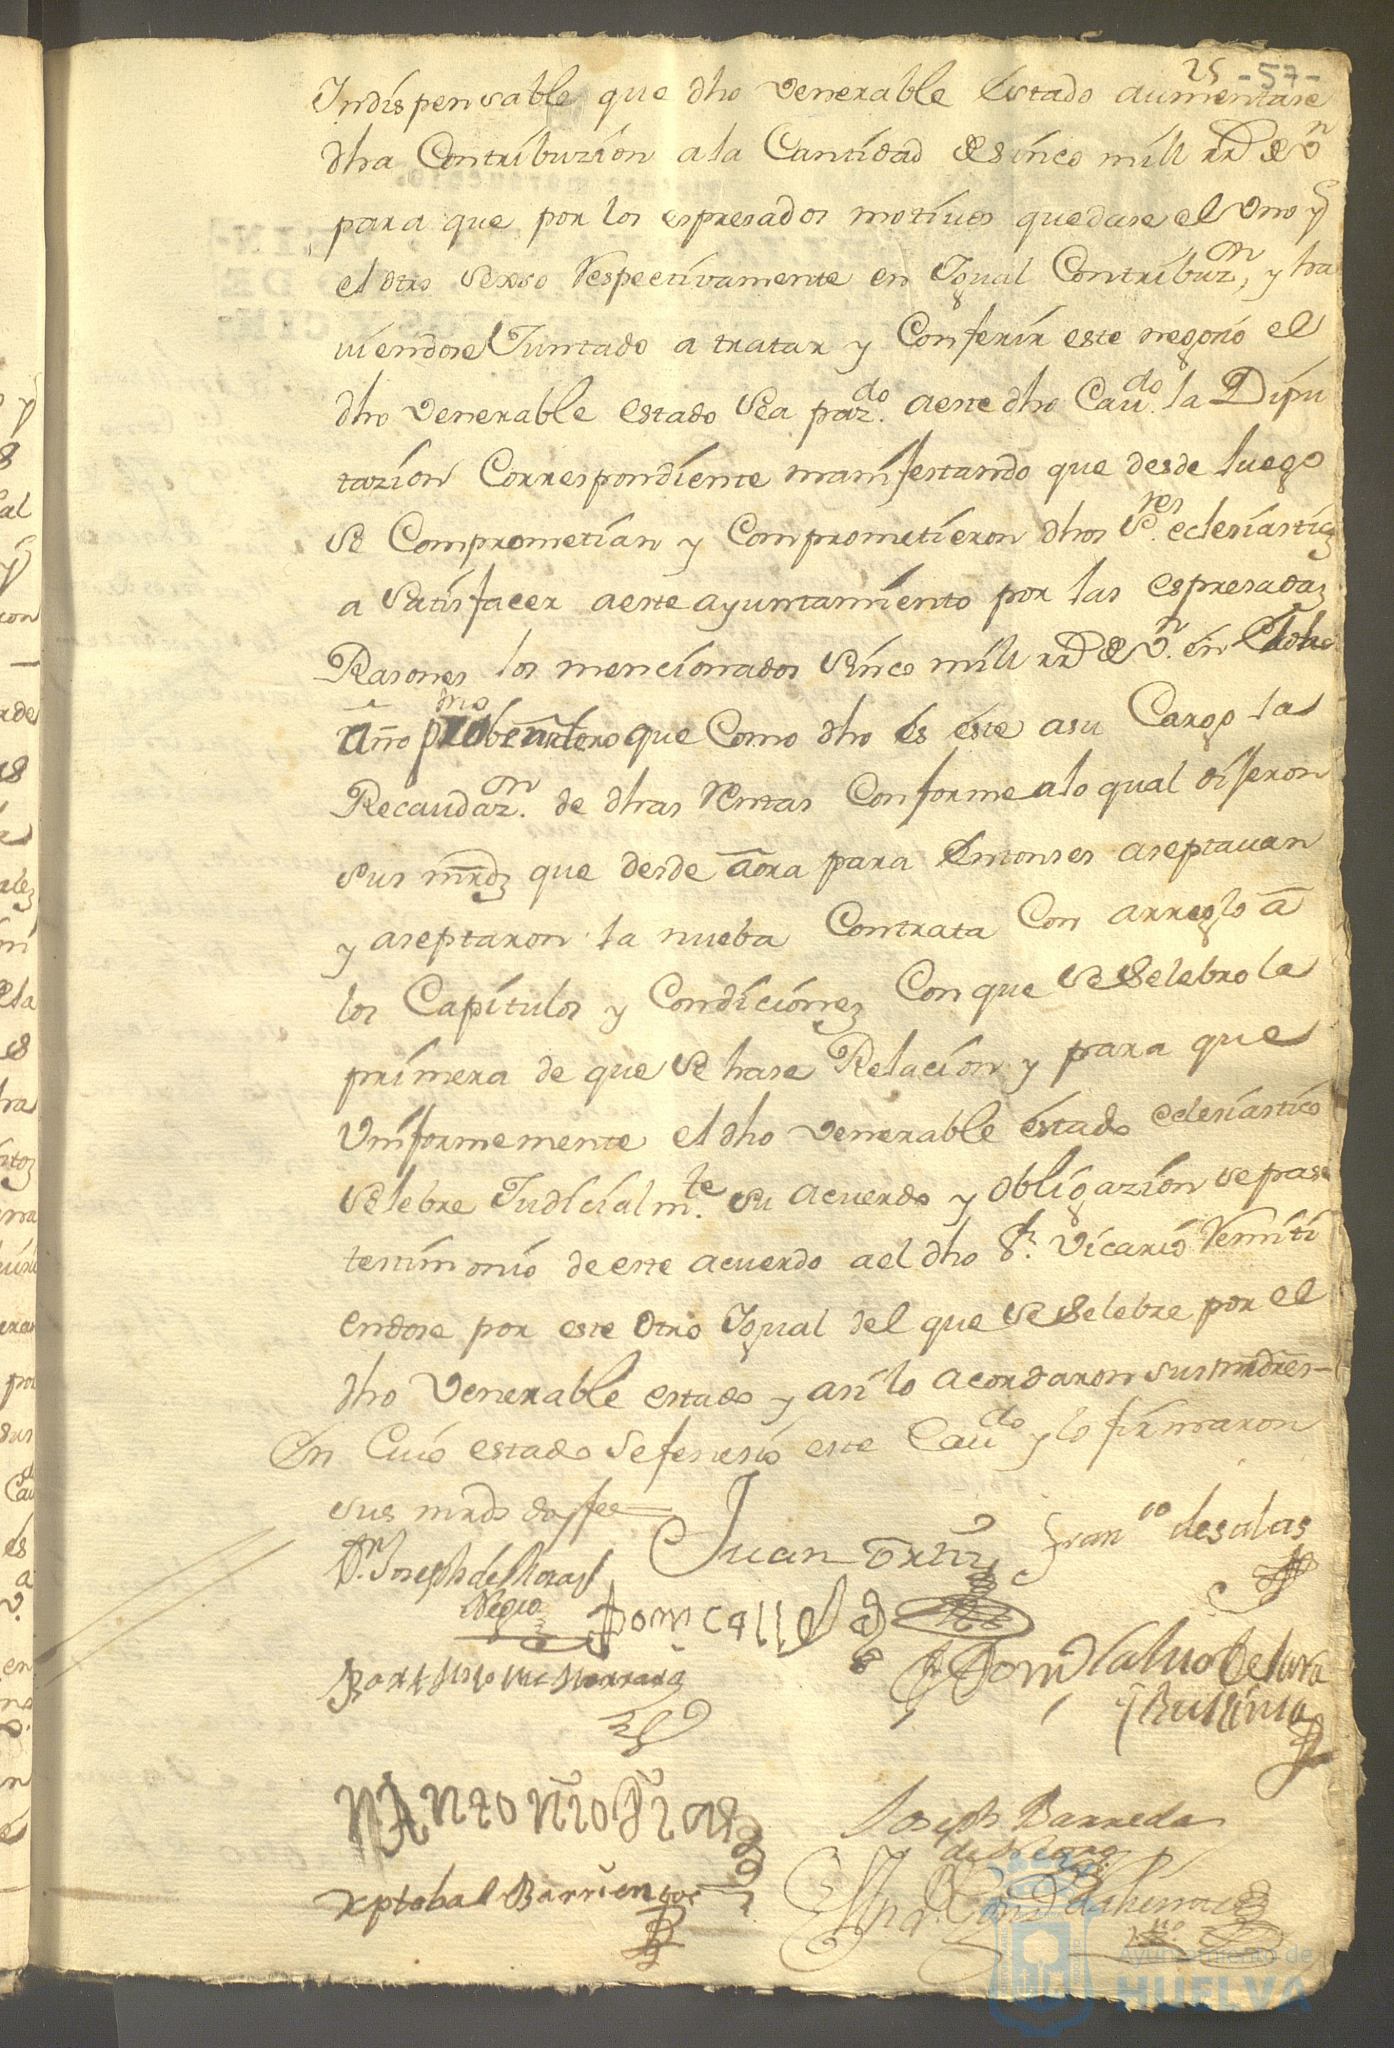 25 -57-
Indispensable que dho Venerable Estado aumentase
dha Contribuzion a la Cantidad de sinco mill rrs de Vn
para que por los espresados motivos quedase el Vno y
el otro Sexso Respectivamente en Igual Contribuzn, y ha
viendose Juntado a tratar y Conferir este negosio el
dho Venerable estado Sea pazdo. a este dho Cauido. la Dipu
tazion Correspondiente manifestando que desde luego
se Comprometian y Comprometieron dhos Sres. eclesiasticos
a Satisfacer a este ayuntamiento por las espresadas
Rasones los mencionados Sinco mill rrs de Vn. en
año que Como dho es este a su Cargo la
Recaudazn. de dhas Rentas Conforme a lo qual dijeron
sus mrds que desde aora para Entonses aseptauan
y aseptaron la nueba Contrata Con arreglo a
los Capitulos y Condiciones Con que se Selebro la
primera de que se hase Relacion y para que
Vniformemente el dho Venerable estado eclesiastico
Selebre Judicialmte. su acuerdo y obligazion se pase
testimonio de este acuerdo a el dho Sr. Vicario Remiti
endose por este otro Igual del que se Selebre por el
dho Venerable estado y asi lo acordaron sus mrdes-
En Cuio estado se fenesio este Caudo y lo firmaron
sus mrds doy fee
Juan Ortiz
Franco desalas
Dn. Joseph de
Negro
Antonio Diaz
Joseph Barreda
Xptobal Barrientos
Ayuntamiento de
HUELVA